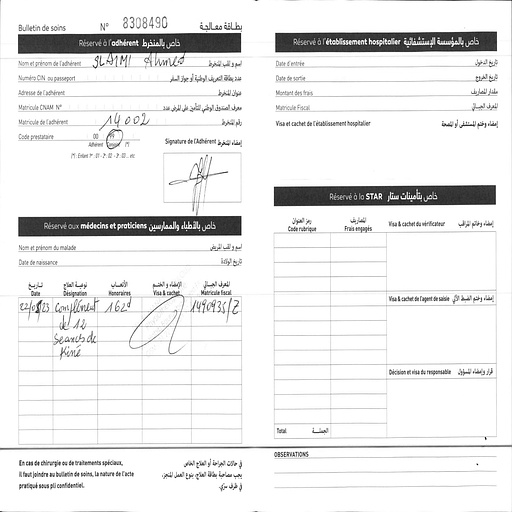 Bulletin de soins N° 8308490 بطاقة معالجة
Réservé à l'adhérent خاص بالمنخرط
Nom et prénom de l'adhérent SLAIMI Ahmed اسم و لقب المنخرط
Numéro CIN ou passeport عدد بطاقة التعريف الوطنية أو جواز السفر
Adresse de l'adhérent عنوان المنخرط
Matricule CNAM N° معرف الصندوق الوطني للتأمين على المرض عدد
Matricule de l'adhérent 14002 رقم المنخرط
Code prestataire 00 99 (*) Signature de l'Adhérent إمضاء المنخرط
Adhérent Conjoint (*)
(*) : Enfant 1er : 01 - 2 : 02 - 3 : 03 ... etc
Réservé aux médecins et praticiens خاص بالأطباء والممارسين
Nom et prénom du malade اسم و لقب المريض
Date de naissance تاريخ الولادة
تاريخ نوعية العلاج الأتعاب الإمضاء و الختم المعرف الجبائي
Date Désignation Honoraires Visa & cachet Matricule fiscal
Complément 162d 1490935/Z
de 12
Seances de
Kiné
En cas de chirurgie ou de traitements spéciaux,
il faut joindre au bulletin de soins, la nature de l'acte
pratiqué sous pli confidentiel.
في حالات الجراحة أو العلاج الخاص
يجب مصاحبة بطاقة العلاج، بنوع العمل المنجز،
في ظرف سرّي.
Réservé à l'établissement hospitalier خاص بالمؤسسة الإستشفائية
Date d'entrée تاريخ الدخول
Date de sortie تاريخ الخروج
Montant des frais مقدار المصاريف
Matricule Fiscal المعرف الجبائي
Visa et cachet de l'établissement hospitalier إمضاء وختم المستشفى أو المصحة
Réservé à la STAR خاص بتأمينات ستار
رمز العنوان المصاريف
Code rubrique Frais engagés
Visa & cachet du vérificateur إمضاء وخاتم المراقب
Visa & cachet de l'agent de saisie إمضاء وختم الضبط الآلي
Décision et visa du responsable قرار وإمضاء المسؤول
Total الجملة
OBSERVATIONS